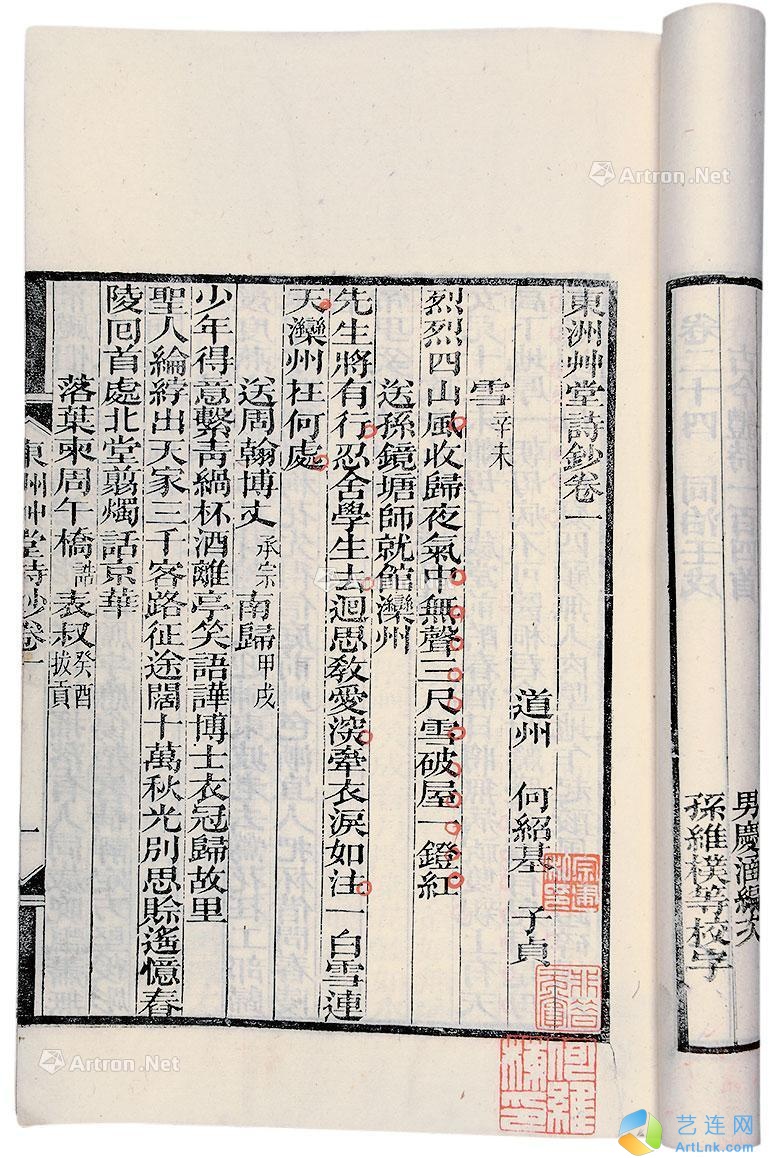 男慶涵編次
孫維樸等校字
東洲艸堂詩鈔卷一
道州 何紹基 子貞
雪 辛未
烈烈四山風收歸夜氣中無聲三尺雪破屋一鐙紅
送孫鏡塘師就館灤州
先生將有行忍舍學生去迴思敎愛深牽衣淚如注一白雪連
天灤州在何處
送周翰博丈 承宗 南歸 甲戌
少年得意繫靑緺杯酒離亭笑語譁博士衣冠歸故里
聖人綸綍出天家三千客路征途闊十萬秋光別思賒遙憶舂
陵回首處北堂翦燭話京華
落葉柬周午橋 誥 表叔 癸酉拔貢
東洲艸堂詩鈔卷一
一
Artron.Net
Artron.Net
Artron.Net
艺连网
ArtLnk.com